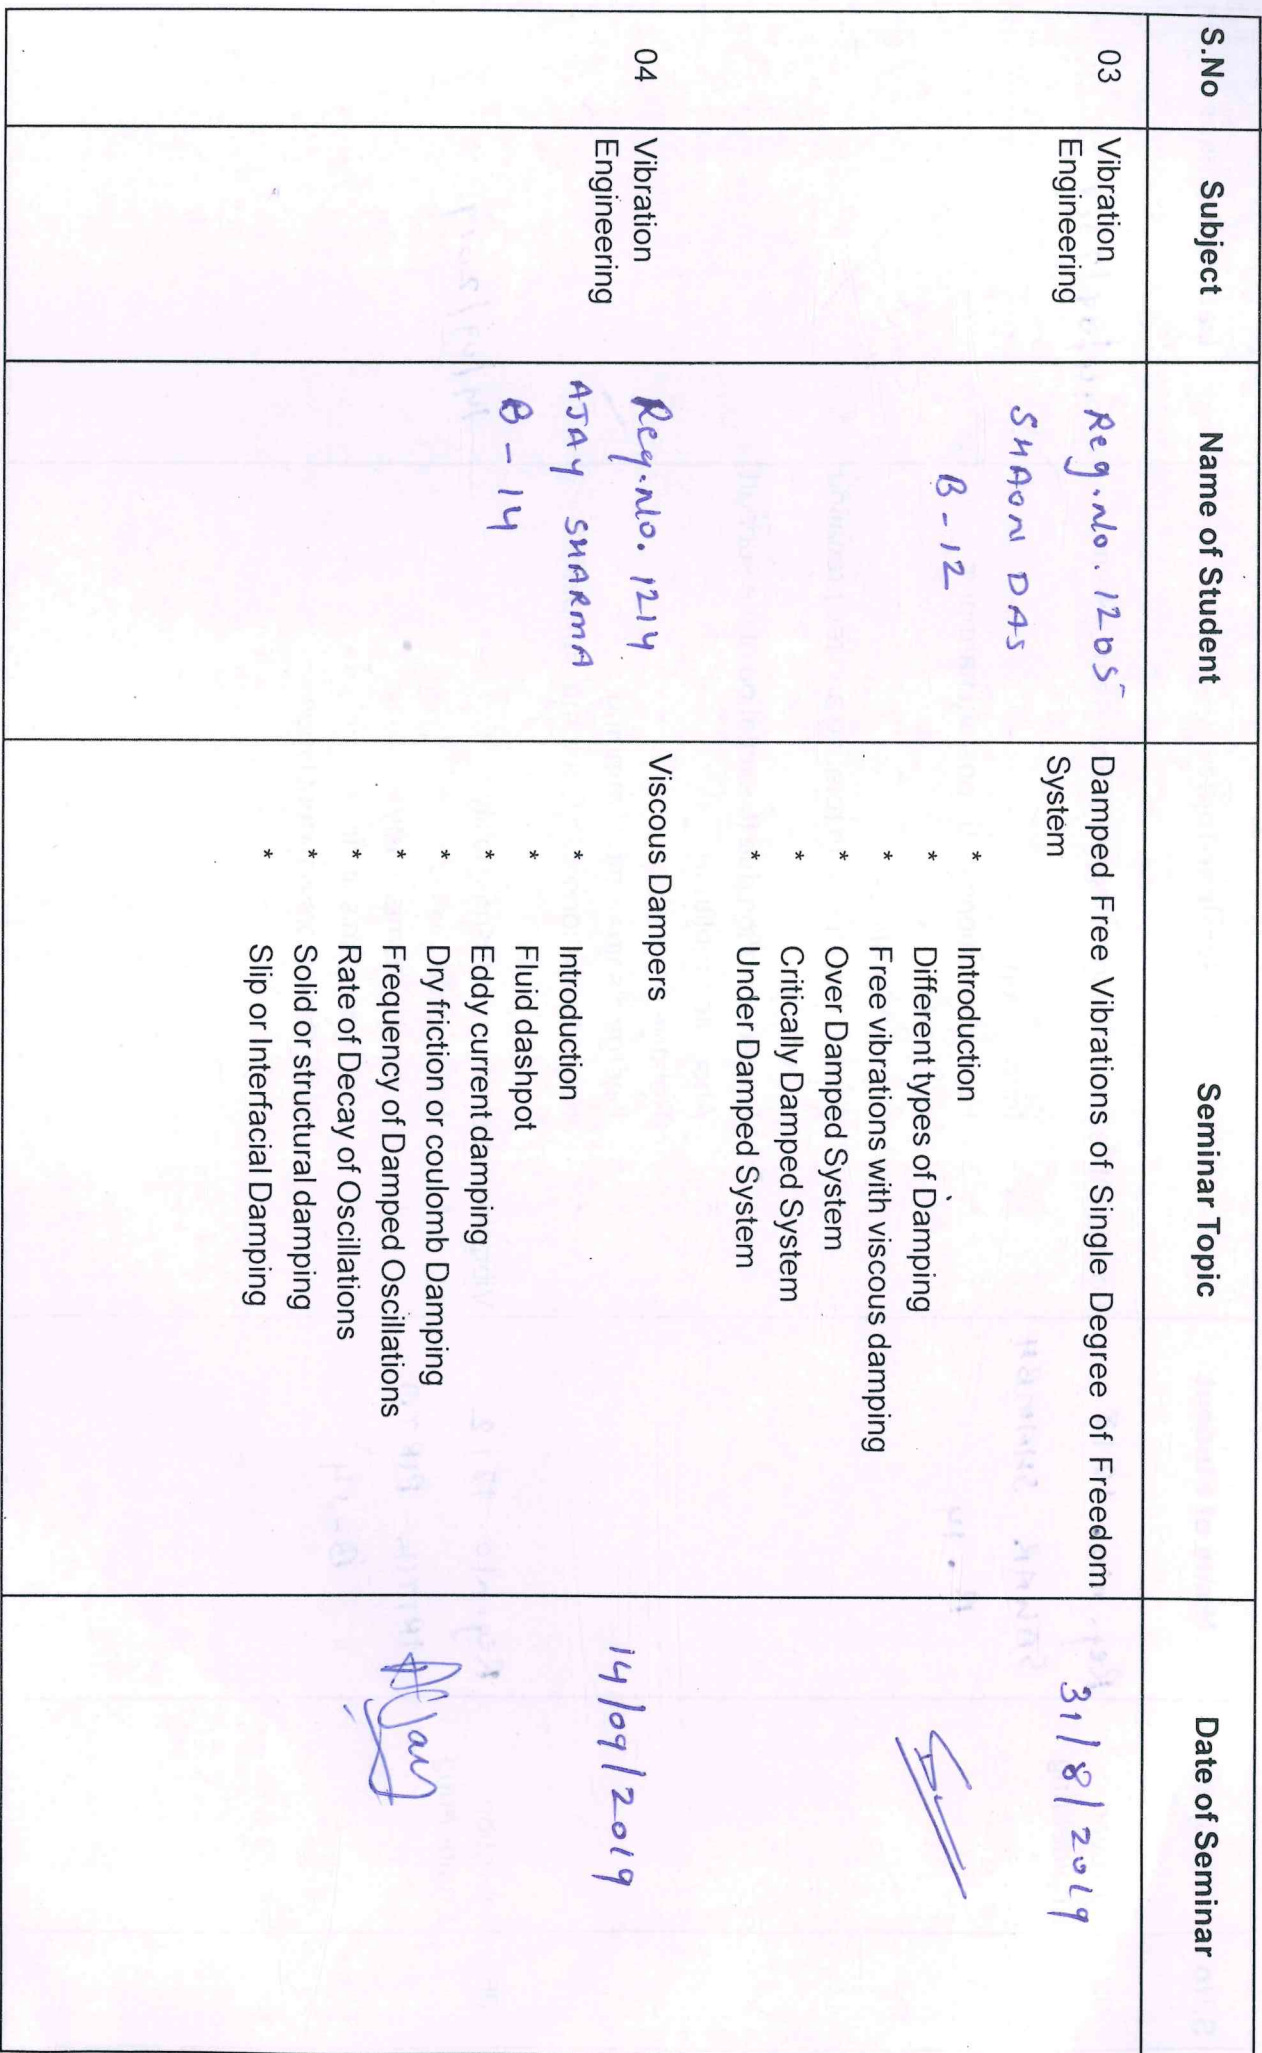 S.No Subject Name of Student Seminar Topic Date of Seminar
03 Vibration Engineering
Reg.No. 1205
SHAON DAS
B-12
Damped Free Vibrations of Single Degree of Freedom
System
* Introduction
* Different types of Damping
* Free vibrations with viscous damping
* Over Damped System
* Critically Damped System
* Under Damped System
31/8/2019
04 Vibration Engineering
Reg.No. 1214
AJAY SHARMA
B-14
Viscous Dampers
* Introduction
* Fluid dashpot
* Eddy current damping
* Dry friction or coulomb Damping
* Frequency of Damped Oscillations
* Rate of Decay of Oscillations
* Solid or structural damping
* Slip or Interfacial Damping
14/09/2019
Ajay